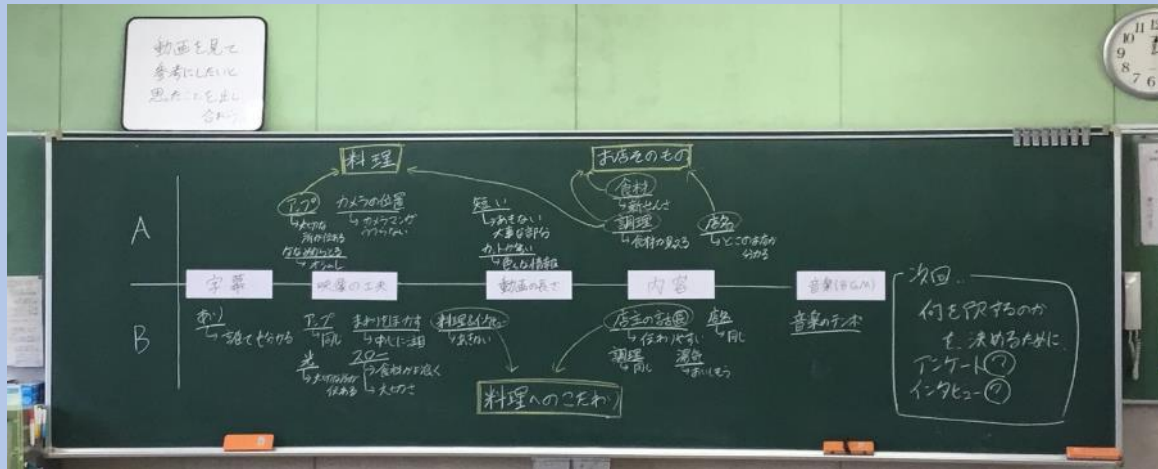 動画を見て
参考にしたいと
思ったことを出し
合おう。
料理
お店そのもの
A
アップ
→大切な
所が伝わる
ななめからとる
→オシャレ
カメラの位置
→カメラマンが
うつらない
短い
→あきない
大事な部分
カットが多い
→色んな情報
食材
→新せんさ
調理
→食材が見える
店名
→どこのお店か
分かる
字幕
映像の工夫
動画の長さ
内容
音楽(BGM)
B
あり
→誰でも分かる
アップ
→同じ
光
→大切な所が
伝わる
まわりをぼかす
→中心に注目
スロー
→食材がよく
→大切さ
料理&インタビュー
→あきない
店主の話
→伝わりやすい
調理
→同じ
店名
→同じ
湯気
→おいしそう
音楽のテンポ
料理へのこだわり
次回..
何を訳するのか
を、決めるために..
アンケート?
インタビュー?
11 12
10
9
8
7 6